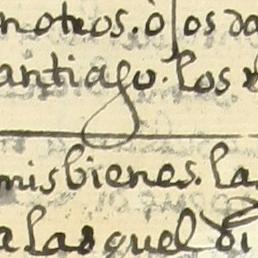 notros. o los da
antiago. los
mis bienes. la
a las quel di